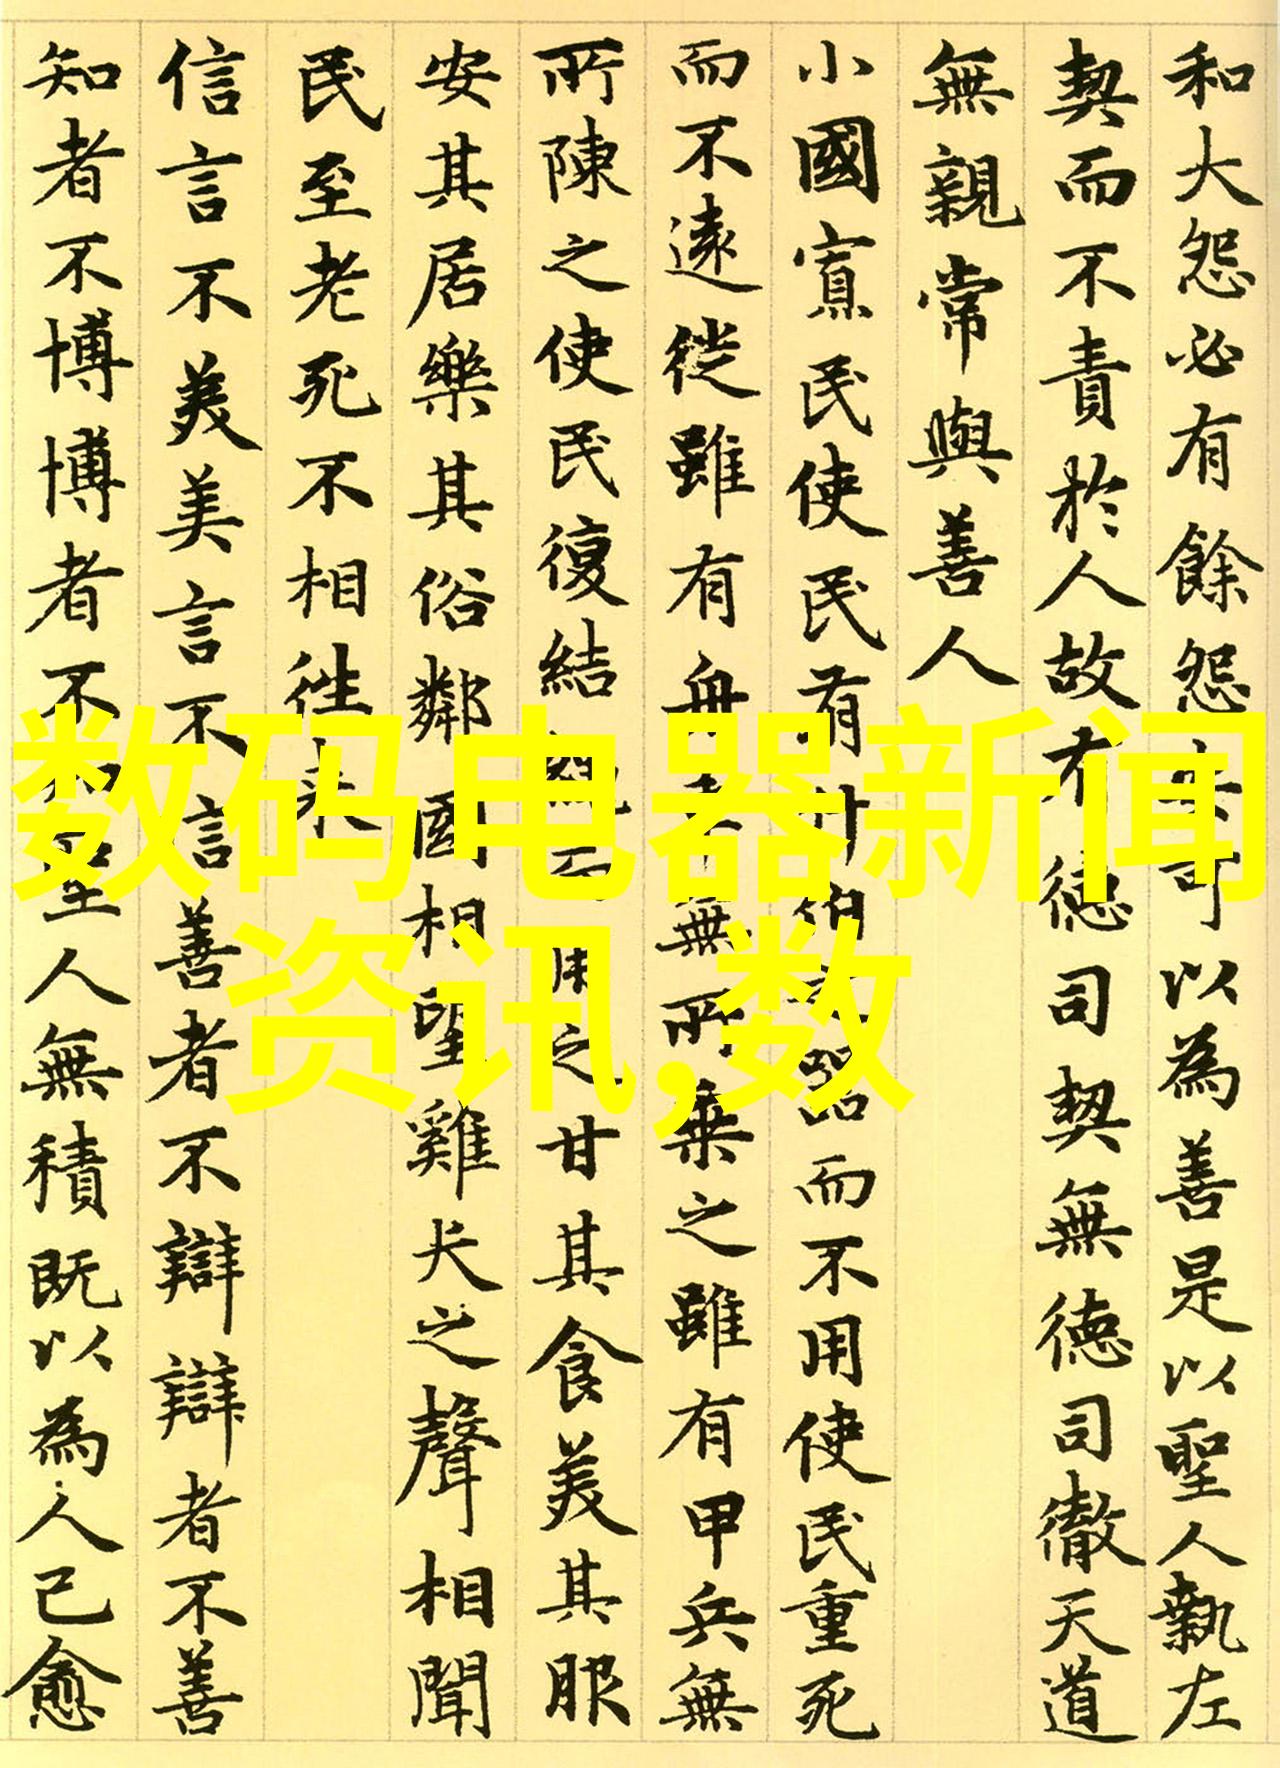 和大怨必有餘怨安可以為善是以聖人執左
契而不責於人故有德司契無德司徹天道
無親常與善人
小國寡民使民有什伯之器而不用使民重死
而不遠徙雖有舟車無所乘之雖有甲兵無
所陳之使民復結繩而用之甘其食美其服
安其居樂其俗鄰國相望雞犬之聲相聞
民至老死不相往来
信言不美美言不信善者不辯辯者不善
知者不博博者不知聖人無積既以為人己愈
数码电器新闻
资讯,数